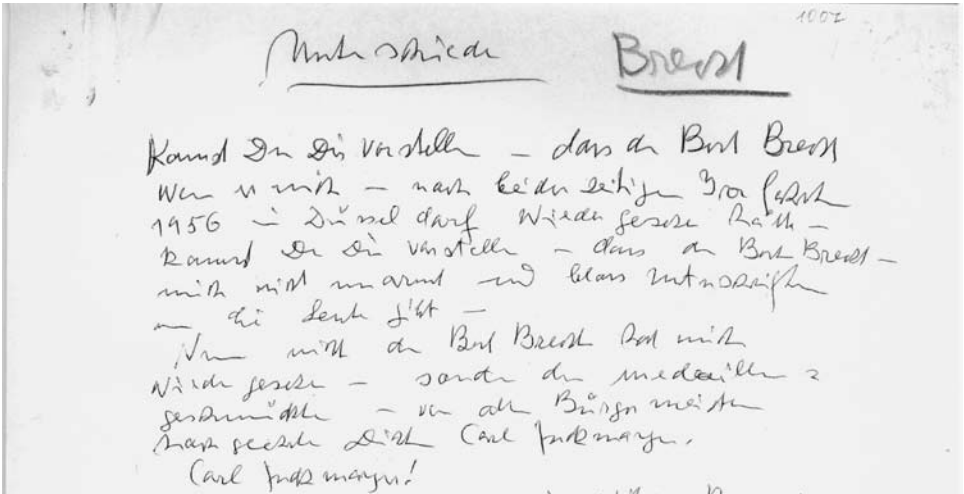 1007
Unterschiede Brecht
Kannst Du Dir vorstellen – dass der Bert Brecht
wenn er mich – nach beiderseitigen
1956 in Düsseldorf wiedergesehen hätte –
kannst Du Dir vorstellen – dass der Bert Brecht –
mich nicht umarmt und bloss
die Hand gibt –
Nun nicht der Bert Brecht hat mich
wiedergesehen – sondern der medaillen =
geschmückte – von allen Bürgermeistern
Dich Carl Zuckmayer.
Carl Zuckmayer!